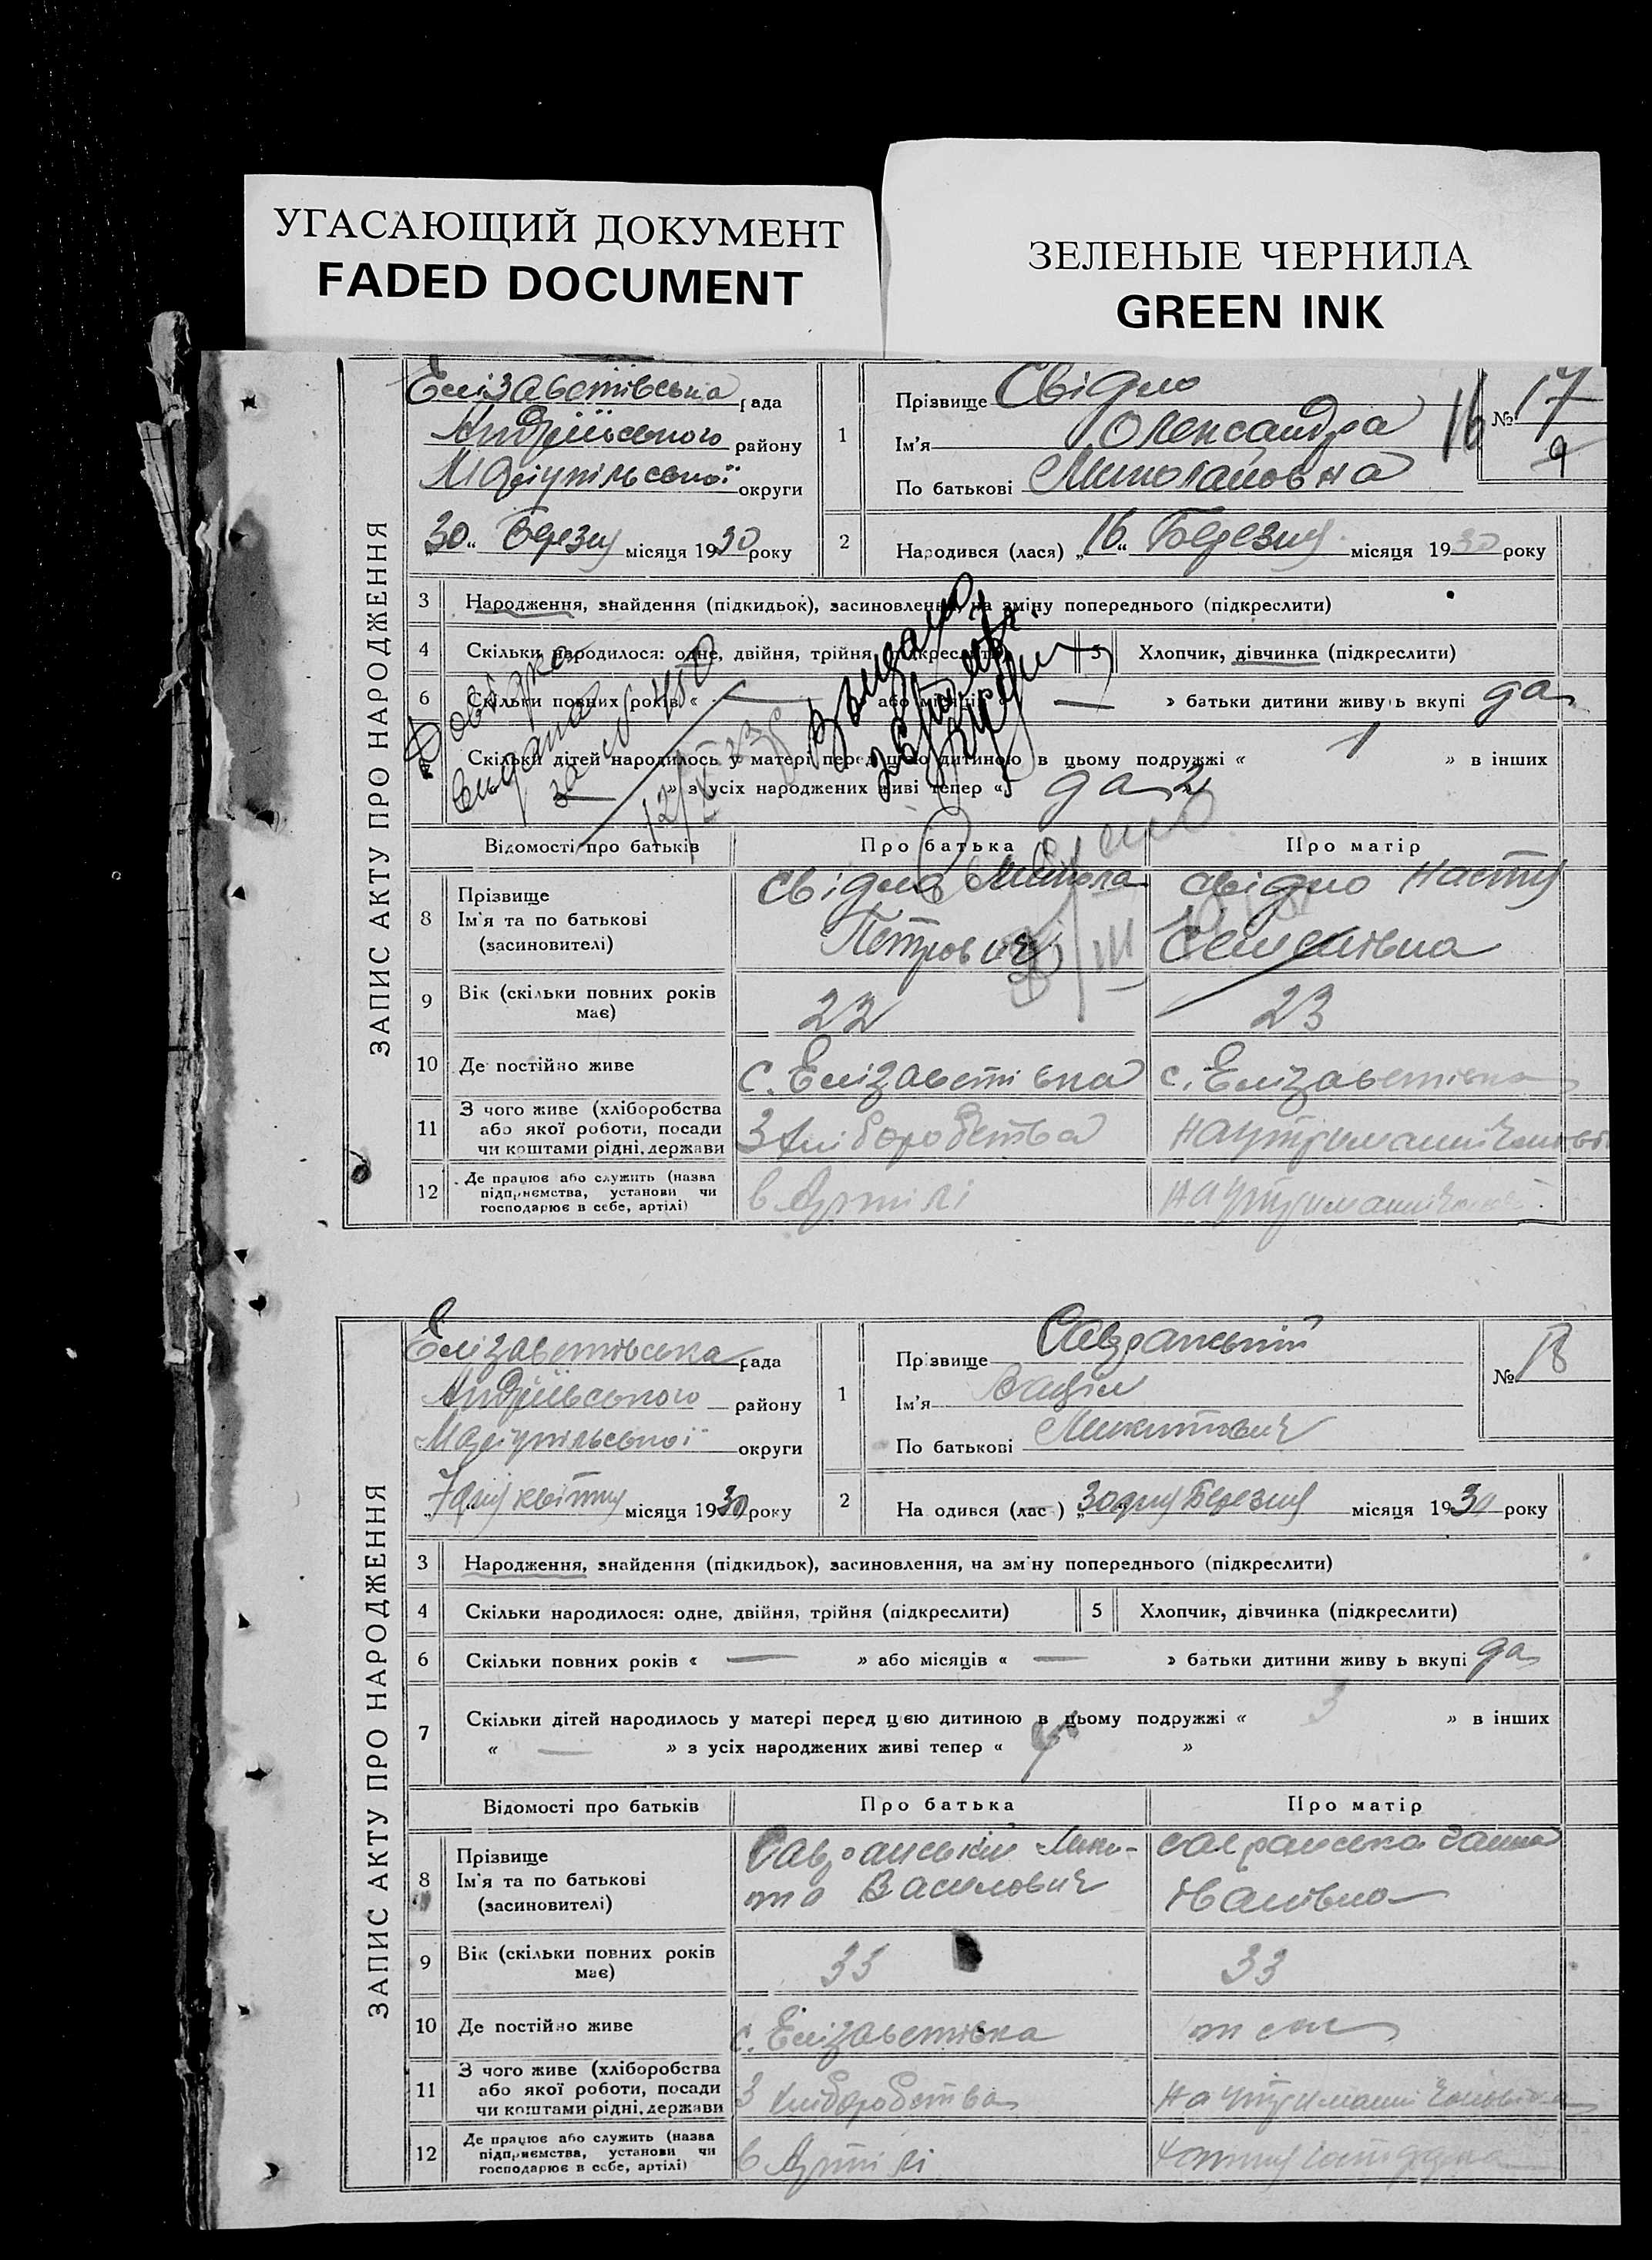 УГАСАЮЩИЙ ДОКУМЕНТ
FADED DOCUMENT
ЗЕЛЕНЫЕ ЧЕРНИЛА
GREEN INK
ЗАПИС АКТУ ПРО НАРОДЖЕННЯ
Єлізаветівська рада
Андріївського району
Маріупільської округи
„30“ Березня місяця 1930 року
1
Прізвище Свідло
Ім'я Олександра
По батькові Миколаєвна
16
№ 17
9
2 Народився (лася) „16“ Березня місяця 1930 року
3 Народження, знайдення (підкидьок), засиновлення, на зміну попереднього (підкреслити)
4 Скільки народилося: одне, двійня, трійня (підкреслити) 5 Хлопчик, дівчинка (підкреслити)
6 Скільки повних років « — » або місяців « — » батьки дитини живуть вкупі да
Скільки дітей народилось у матері перед цією дитиною в цьому подружжі « 1 » в інших
« — » з усіх народжених живі тепер « да 2 »
Довідка
видана
за №
Відомості про батьків Про батька Про матір
8 Прізвище
Ім'я та по батькові
(засиновителі)
Свідло Микола
Петрович
Свідло Настя
Семенівна
9 Вік (скільки повних років має) 22 23
10 Де постійно живе с. Єлізаветівка с. Єлізаветівка
11 З чого живе (хліборобства
або якої роботи, посади
чи коштами рідні, держави
З хліборобства на утриманні
12 Де працює або служить (назва
підприємства, установи чи
господарює в себе, артілі)
в Артілі на утриманні
ЗАПИС АКТУ ПРО НАРОДЖЕННЯ
Єлізаветівська рада
Андріївського району
Маріупільської округи
7 дня квітня місяця 1930 року
1
Прізвище Савранський
Ім'я
По батькові Микитович
№ 18
2 На одився (лас ) „30 дня Березня місяця 1930 року
3 Народження, знайдення (підкидьок), засиновлення, на зміну попереднього (підкреслити)
4 Скільки народилося: одне, двійня, трійня (підкреслити) 5 Хлопчик, дівчинка (підкреслити)
6 Скільки повних років « — » або місяців « — » батьки дитини живу ь вкупі да
7 Скільки дітей народилось у матері перед цією дитиною в цьому подружжі « 3 » в інших
« — » з усіх народжених живі тепер « »
Відомості про батьків Про батька Про матір
8 Прізвище
Ім'я та по батькові
(засиновителі)
Савранський Мики-
та Василович
Савранська Ганна
Іванівна
9 Вік (скільки повних років має) 33 33
10 Де постійно живе с. Єлізаветівка
11 З чого живе (хліборобства
або якої роботи, посади
чи коштами рідні, держави
З хліборобства на утриманні чоловіка
12 Де працює або служить (назва
підприємства, установи чи
господарює в себе, артілі)
в Артілі